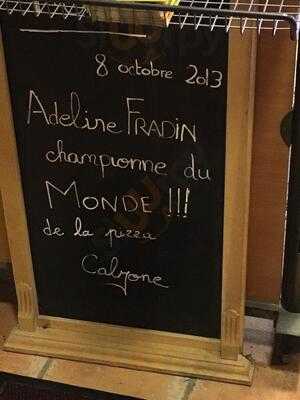 8 octobre 2013
Adeline FRADIN
championne du
MONDE !!!
de la pizza
Calzone